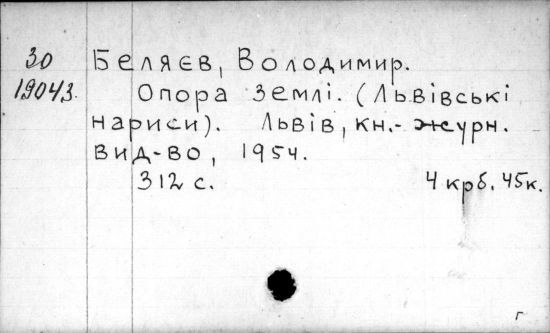 30 Беляєв, Володимир.
19043 Опора Землі. (Львівські
нариси). Львів, кн.-журн.
вид-во, 1954.
312 с. 4 крб. 45к.
г